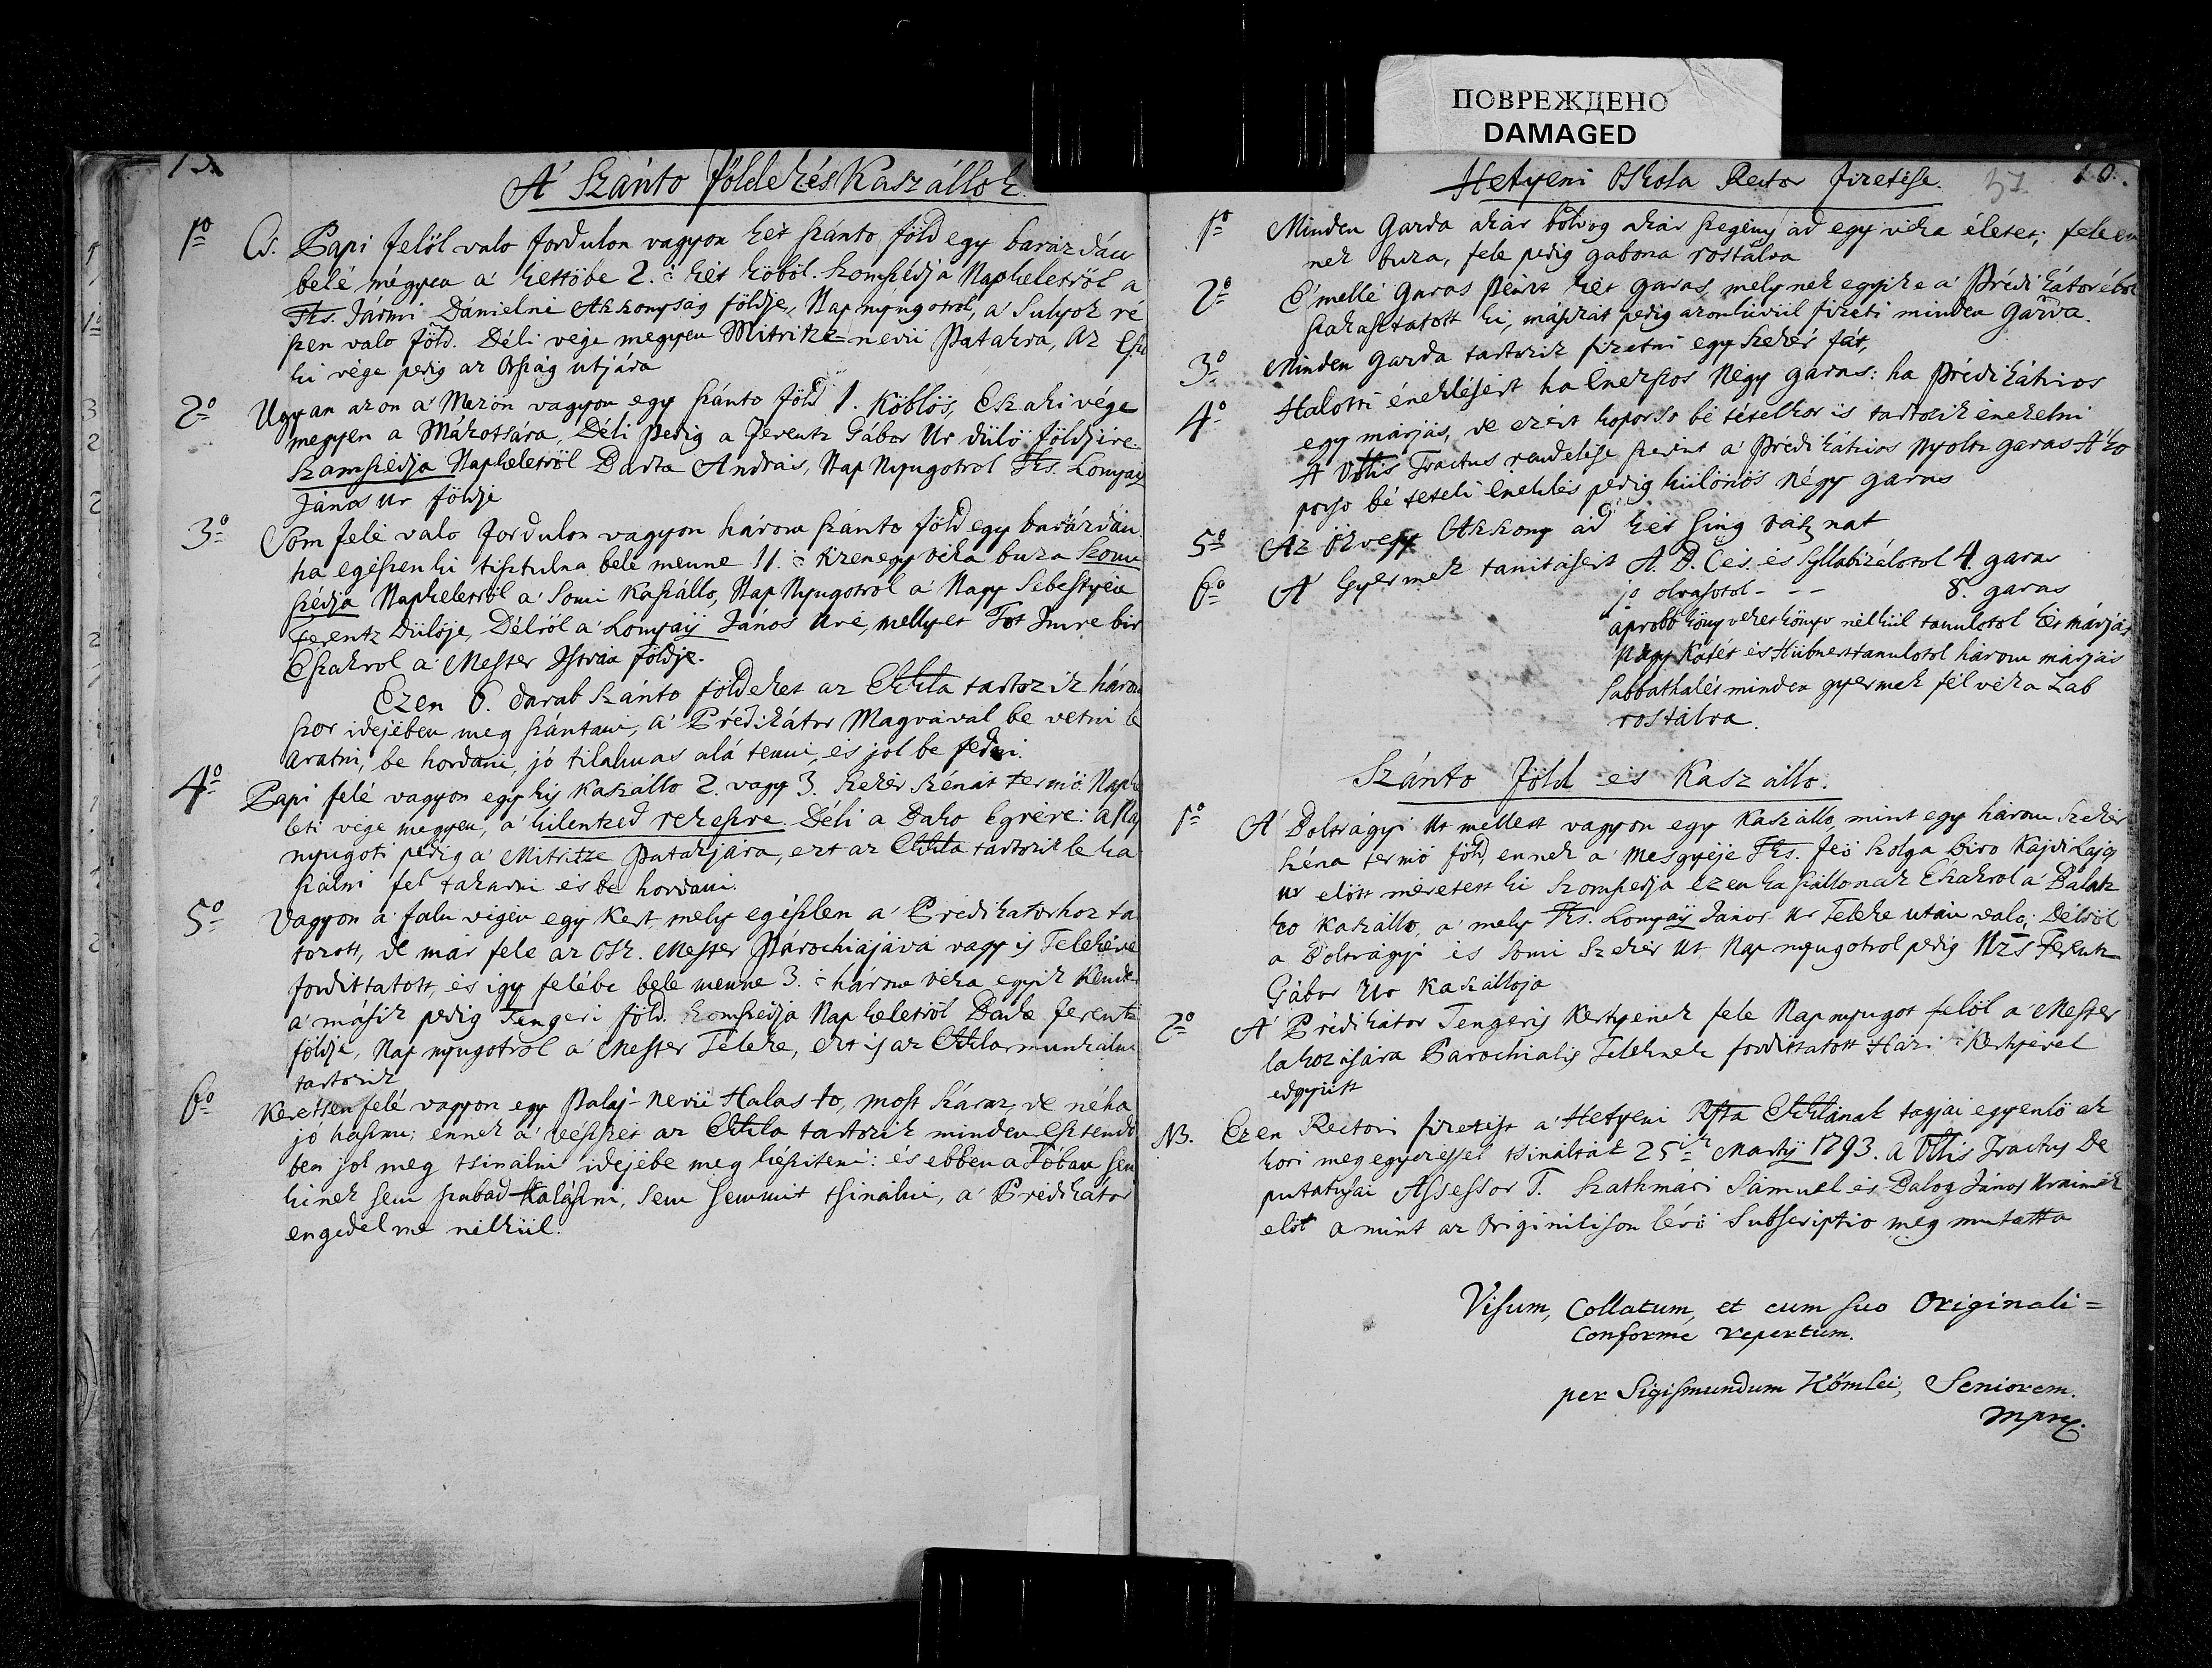 ПОВРЕЖДЕНО
DAMAGED
A' Szánto földek és Kaszállok
1º Cs. Papi felöl valo fordulon vagyon két szánto föld egy barázdán
belé mégyen a' kettöbe 2. két köböl. Szomszédja Napkeletröl a
Tks. Jármi Dánielné Akszonyság földje, Napnyugotrol, a' Sulyok ré
szen valo föld. Déli vége megyen Mitritze nevü Patakra, Az Esza
ki vége pedig az Ország utjára
2º Ugyan azon a' Mezön vagyon egy szánto föld 1. Köblös, Északi vége
megyen a Mákotsára, Déli Pedig a Ferentz Gábor Ur dülö földjére.
Szamszédja Napkeletröl Darta András, Nap Nyugotrol Tks. Lonyay
János Ur földje
3º Som felé valo fordulon vagyon három szánto föld egy barázdán.
ha egészen ki tisztulna belé menne 11. tizenegy véka buza Szom
szédja Napkeletröl a' Somi Kaszállo, Nap Nyugotrol a' Nagy Sebestyén
Ferentz Dülöje, Délröl a' Lonyaÿ János Uré, mellyet Tot Imre bir
Északrol a' Mester István földje.
Ezen 6. darab szánto földeket az Ekkla tartozik három
szor idejében meg szántani, a' Prédikátor Magvával be vetni le
aratni, be hordani, jó tilalmas alá tenni, és jol be fedni.
4º Papi felé vagyon egy kis kaszállo 2. vagy 3. szekér szénát termö. Napke
leti vége megyen, a' kilentzed rekeszre. Déli a Dako Egrére: a Nap
nyugoti pedig a' Mitritze Patakjára, ezt az Ekkla tartozik le ka
szálni fel takarni és be hordani.
5º Vagyon a' falu végén egy Kert, mely egészlen a' Prédikátorhoz ta
tozott, de már fele az Osk. Mester Párochiájává vagy is Telekévé
fordittatott, és igy felébe belé menne 3. három véka egyik Kende
a' másik pedig Tengeri föld. Szomszédja Nap keletröl Darta Ferentz
földje, Nap nyugotrol a' Mester Teleke, ezt is az Ekkla munkálni
tartozik
6º Keretsen felé vagyon egy Palaj-nevü Halas to, most száraz, de néha
jó haszmu; ennek a' vészszét az Ekkla tartozik minden Esztendö
ben jol meg tsinálni idejébe meg késziteni: és ebben a Tóban sen
kinek sem szabad Halászni, sem semmit tsinálni, a' Prédikátor
engedelme nélkül.
10.
Hetyeni Oskola Rector fizetése.
1º Minden Garda akár boldog akár szegény ád egy véka életet; fele en
nek buza, fele pedig gabona rostálva
2º E' mellé Garas Pénzt két garas, melynek egyike a' Prédikátorébol
szakasztatott ki, másikát pedig azonkivül fizeti minden Garda.
3º Minden Garda tartozik fizetni egy szekér fát,
4º Halotti éneklésért ha Énekszos Négy garas: ha Prédikátzios
egy márjás, de ezért koporso bé tételkor is tartozik énekelni
A Vttis Tractus rendelése szerint a' Prédikátzios Nyoltz garas A' ko
porso bé tételi éneklés pedig különös négy garas
5º Az özvegy Akszony ád két sing vásznat
6º A' Gyermek tanitásért A. B. Cés. és Syllabizálotol 4 garas
jo olvasotol - - - 8. garas
aprobb könyveket könyv nélkül tanulotol két márjás
Nagy Kátét és Hübnert tanulotol három márjás
Sabbathalés minden gyermek fél véka Zab
rostálva.
Szánto Föld és Kaszállo.
1º A' Boltrágyi Ut mellett vagyon egy Kaszállo, mint egy három szekér
széna termö föld, ennek a' mesgyéje Tks. Fö Szolga biro Kajdi Lajos
ur elött méretett ki Szomszédja ezen kaszállonak Északrol a' Balatz
ko kaszállo, a' mely Tks. Lonyaÿ János Ur Teleke után valo; Délröl
a Boltrágyi és Somi Szekér Ut, Nap nyugotrol pedig Nzs Ferentz
Gábor Ur Kaszálloja
2º A' Prédikátor Tengeris Kertyének fele Napnyugot felöl a' Mester
lakozására Parochialis Teleknek fordittatott Házi Kertyével
edgyütt
NB. Ezen Rectori fizetést a' Hetyeni Rfta Ekklának tagjai egyenlö ak
kori megegyezéssel tsinálták 25ik Martÿ 1793. a Vttis Tractus De
putatusai Assessor T. Szathmári Sámuel és Balog János Uraimék
elöt a mint az Originálison lévö Subscriptio meg mutatta
Visum, Collatum, et cum suo Originali=
Conforme repertum.
per Sigismundum Kömlei, Seniorem.
mpra.